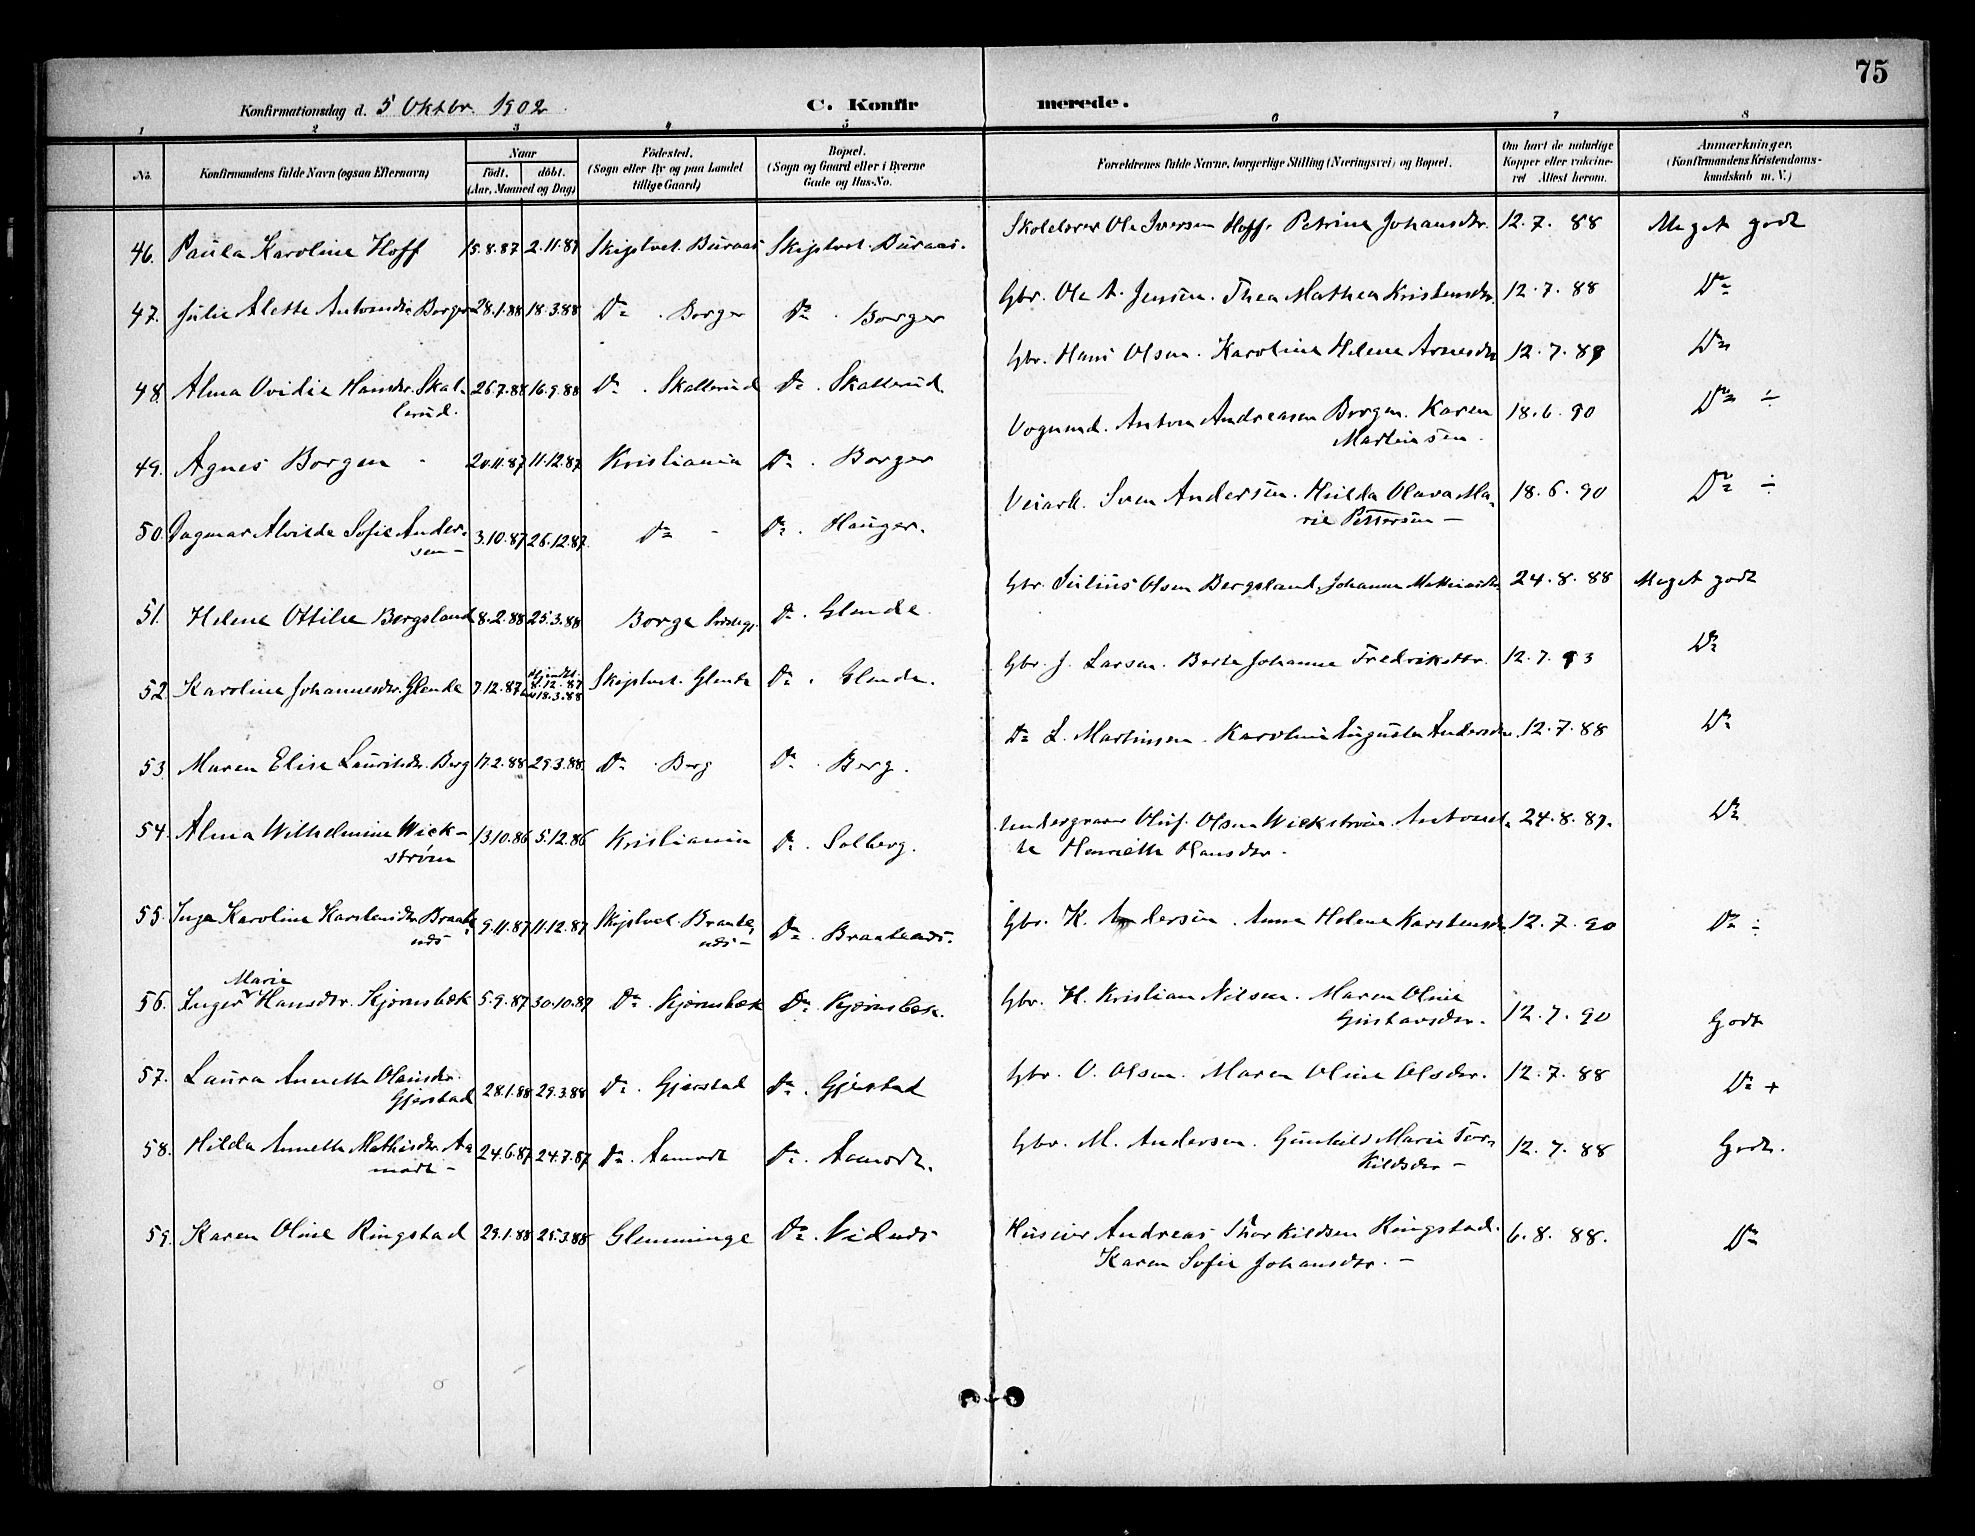 75
Konfirmationsdag d. 5 Oktbr. 1902.
C. Konfirmerede.
1 2 3 4 5 6 7 8
No. Konfirmandens fulde Navn (ogsaa Efternavn) Naar Födt. döbt. (Aar, Maaned og Dag) Födested. (Sogn eller By og paa Landet tillige Gaard) Bopæl. (Sogn og Gaard eller i Byerne Gade og Hus-No. Forældrenes fulde Navne, borgerlige Stilling (Næringsvei) og Bopæl. Om havt de naturlige Kopper eller vaksineret Attest herom. Anmærkninger. (Konfirmandens Kristendomskundskab m. V.)
46. Paula Karoline Hoff 15.8.87 2.11.87 Skiptvet. Buraas Skiptvet. Buraas. Skolelærer Ole Iversen Hoff. Petrine Johansdtr. 12.7.88 Meget godt
47. Julie Alette Antonsdtr. Borger 28.1.88 18.3.88 Do. Borger Do. Borger Gbr. Ole A. Jensen. Thea Mathea Kristensdtr. 12.7.88 Do
48. Alma Ovidie Hansdtr. Skal-
lerud. 26.7.88 16.9.88 Do. Skallerud Do. Skallerud Gbr. Hans Olsen. Karoline Helene Arnesdtr 12.7.89 Do
49. Agnes Borgen 20.11.87 11.12.87 Kristiania Do. Borger Vognmd. Anton Andreasen Borgen. Karen
Martinsen. 18.6.90 Do ÷
50. Dagmar Alvilde Sofie Ander-
sen 3.10.87 26.12.87. Do Do. Hauger. Veiarb. Sven Andersen. Hulda Olava Ma-
rie Pettersen 18.6.90 Do ÷
51. Helene Ottilie Bergsland 8.2.88 25.3.88 Borge Do. Glende. Gbr. Julius Olsen Bergsland. Johanne 24.8.88 Meget godt
52. Karoline Johannesdtr. Glende 7.12.87 hjemdbt.
8.12.87
18.3.88 Skiptvet. Glende Do. Glende. Gbr. J. Larsen. Berte Johanne Fredriksdtr. 12.7.93 Do
53. Maren Elise Lauritsdtr. Berg 17.2.88 29.3.88. Do. Berg Do. Berg. Do L. Martinsen. Karoline Augusta Andersdtr. 12.7.88 Do
54. Alma Wilhelmine Wick-
strøm 13.10.86 5.12.86 Kristiania Do. Solberg. Oluf Olsen Wickstrøm. Antonet-
te Henriette Hansdtr. 24.8.87. Do
55. Inga Karoline Karstensdtr. Braate
nds 9.11.87 11.12.87 Skiptvet. Braate
nds Do. Braatends. Gbr. K. Andersen. Anne Helene Karstensdtr 12.7.90 Do ÷
56. Inger Marie Hansdtr. Kjørnsbæk 5.9.87 30.10.87 Do. Kjørnsbæk Do. Kjørnsbæk. Gbr. H. Kristian Nilsen. Maren Oline
Gustavsdtr. 12.7.90 Godt
57. Laura Annette Olausdtr.
Gjerstad 28.1.88 29.3.88 Do. Gjerstad Do. Gjerstad Gbr. O. Olsen. Maren Oline Olsdtr. 12.7.88 Do +
58. Hilda Annette Mathisdtr. Aa
modt 24.6.87 24.7.87 Do. Aamodt Do. Aamodt. Gbr. M. Andersen. Gunhild Marie Tor-
kildsdtr 12.7.88 Godt.
59. Karen Oline Ringstad 29.1.88 25.3.88 Glemminge Do. Vidnes Huseier Andreas Thorkildsen Ringstad.
Karen Sofie Johansdtr. 6.8.88. Do